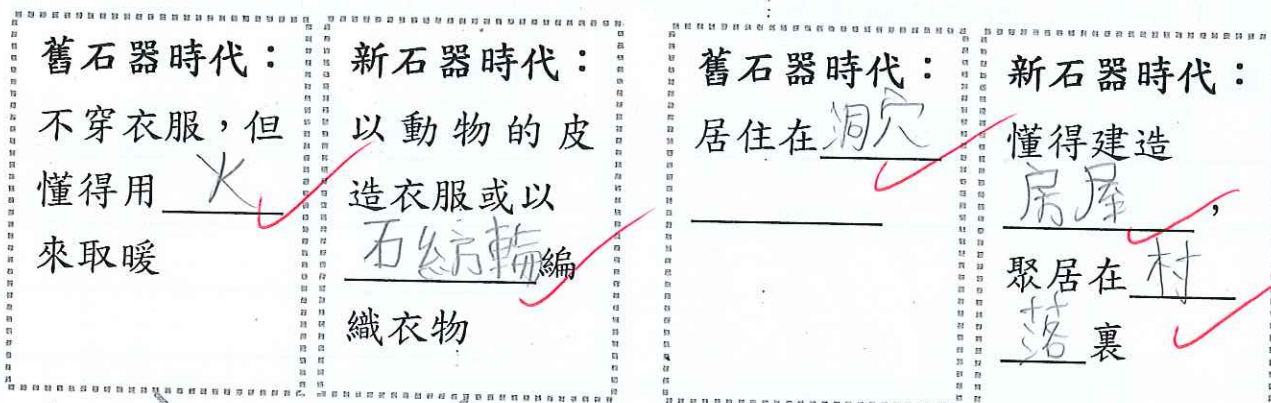 舊石器時代：
不穿衣服，但
懂得用火
來取暖
新石器時代：
以動物的皮
造衣服或以
石紡輪編
織衣物
舊石器時代：
居住在洞穴
新石器時代：
懂得建造
房屋，
聚居在村
落裏